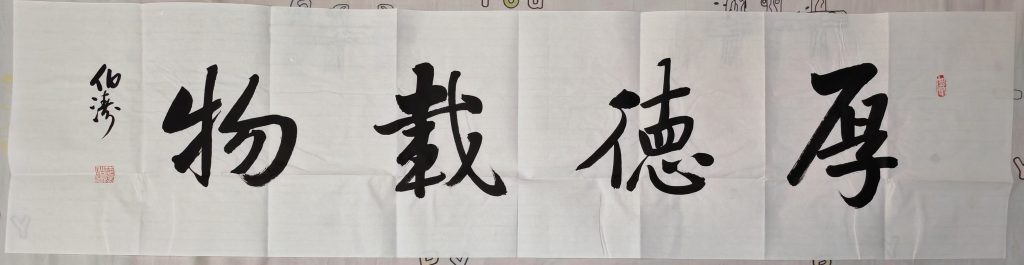 厚德載物
伯濤